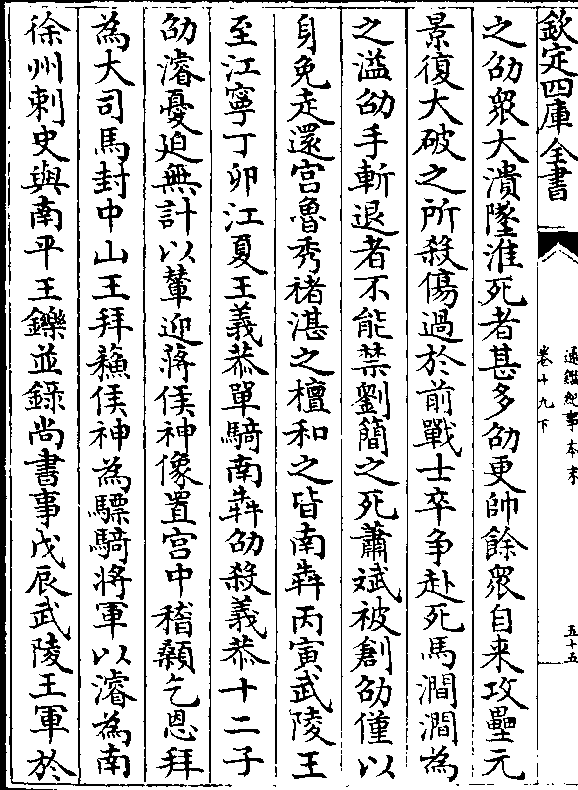 欽定四庫全書
通鑑紀事本末
卷十九下
五十五
之劭衆大潰墜淮死者甚多劭更帥餘衆自来攻壘元
景復大破之所殺傷過於前戰士卒争赴死馬澗澗為
之溢劭手斬退者不能禁劉簡之死蕭斌被創劭僅以
身免走還宫魯秀禇湛之檀和之皆南奔丙寅武陵王
至江寧丁卯江夏王義恭單騎南奔劭殺義恭十二子
劭濬憂迫無計以輦迎蔣侯神像置宫中稽顙乞恩拜
為大司馬封中山王拜蘓侯神為驃騎將軍以濬為南
徐州刺史與南平王鑠並録尚書事戊辰武陵王軍於